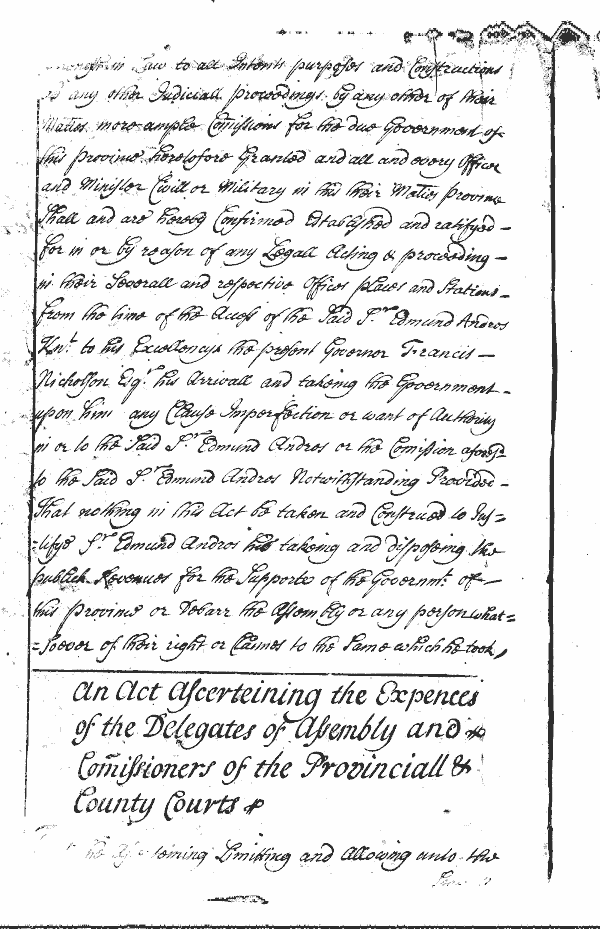 in Law to all Intents purposes and Constructions
as any other Judiciall proceedings by any other of their
Maties more ample Comissions for the due Government of
this Province heretofore Granted and all and every Officer
and Minister Civill or Military in this their Maties Province
Shall and are hereby Confirmed Established and ratifyed –
for in or by reason of any Legall Acting & proceeding –
in their Severall and respective Offices places and Stations –
from the time of the Access of the Said Sr. Edmund Andros
Knt. to his Excellencys the present Governor Francis –
Nicholson Esqr. his Arrivall and takeing the Government –
upon him any Clause Imperfection or want of Authority
in or to the Said Sr. Edmund Andros or the Comission aforesd.
to the Said Sr. Edmund Andros Notwithstanding Provided –
That nothing in this Act be taken and Construed to Jus=
=tifye Sr. Edmund Andros his takeing and disposeing the
publick Revenues for the Supporte of the Governmt. of –
this Province or Debarr the Assembly or any person what=
=soever of their right or Claimes to the Same which he took,
An Act Ascerteining the Expences
of the Delegates of Assembly and
Comissioners of the Provinciall &
County Courts
teining Limitting and Allowing unto the